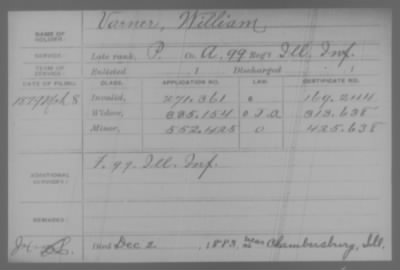 NAME OF SOLDIER: Varner, William
SERVICE: Late rank, P. Co. A, 99 Reg't Ill. Inf.
TERM OF SERVICE: Enlisted , 1 Discharged , 1
DATE OF FILING. CLASS. APPLICATION NO. LAW. CERTIFICATE NO.
1879 Mch 8 Invalid, 271.361 169.244
Widow, 335.154 313.638
Minor, 552.425 425.638
ADDITIONAL SERVICES: F. 99. Ill. Inf.
REMARKS:
Died Dec 2, 1883, near Chambersburg, Ill.